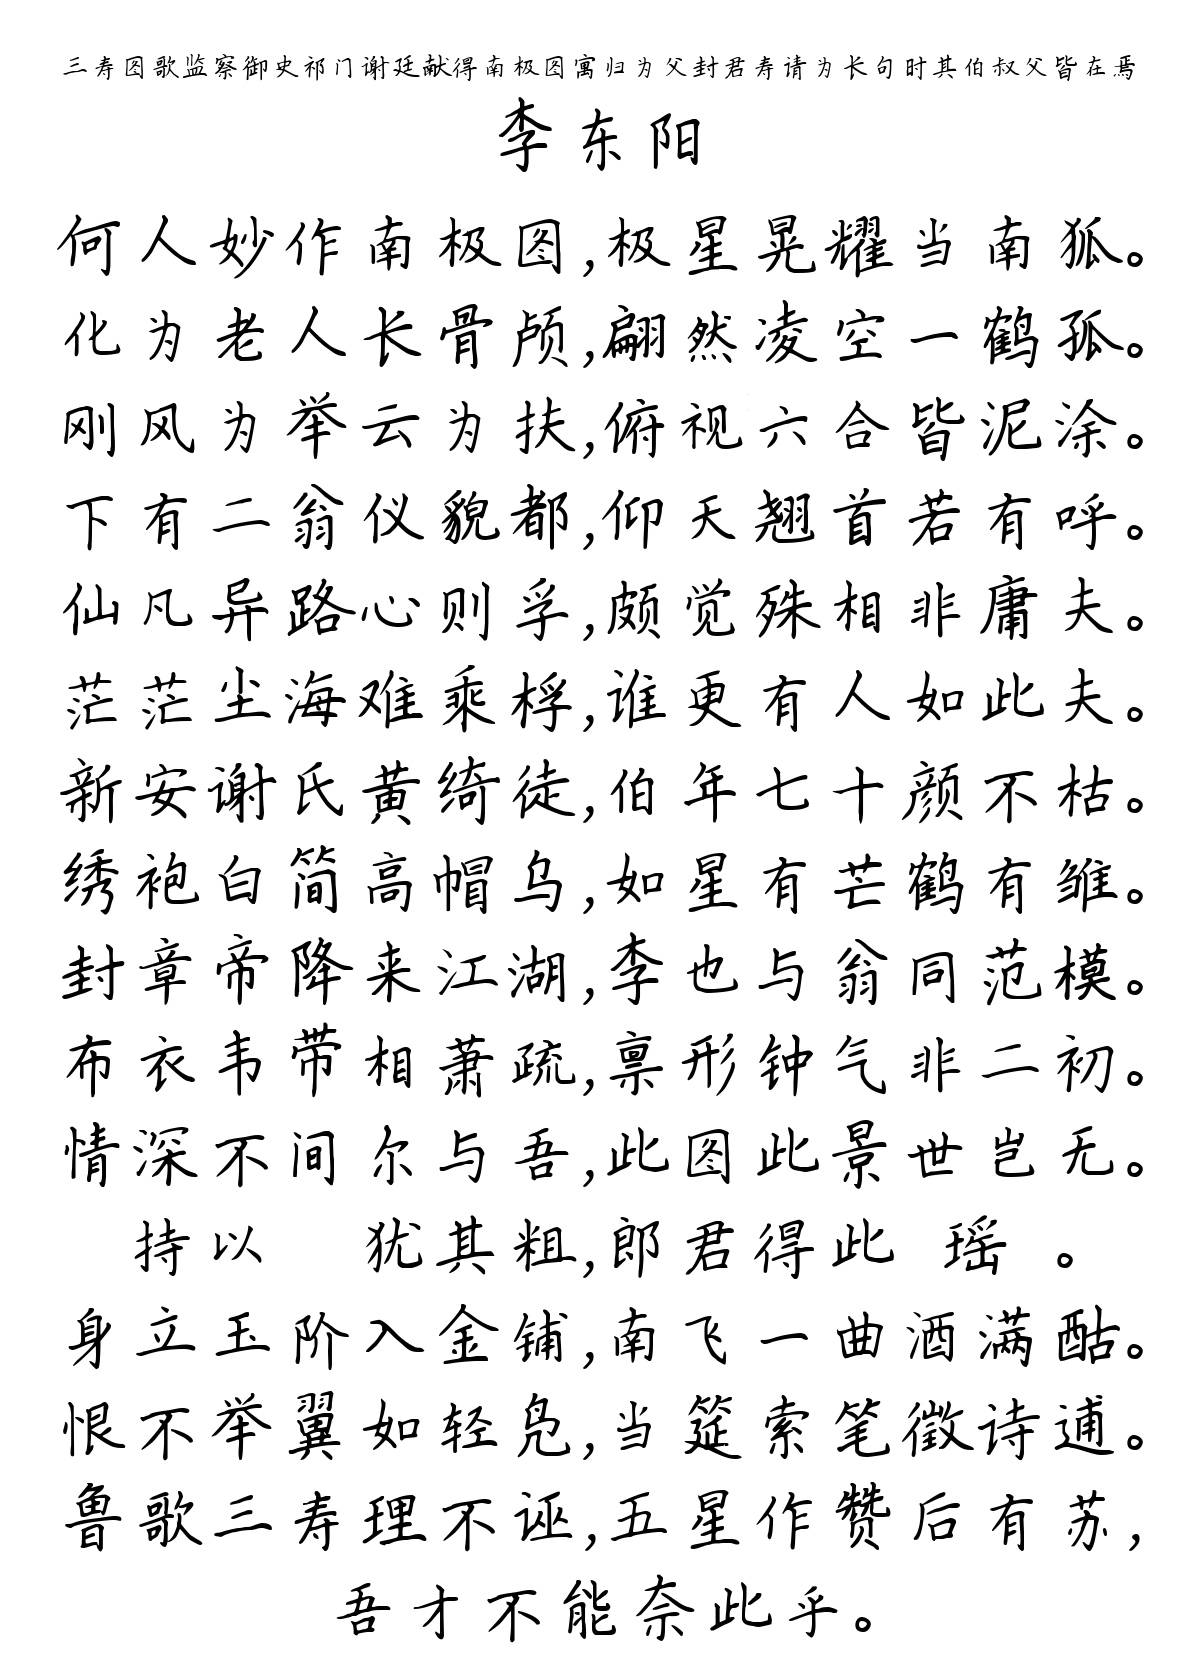 三寿图歌监察御史祁门谢廷献得南极图寓归为父封君寿请为长句时其伯叔父皆在焉
李东阳
何人妙作南极图,极星晃耀当南狐。
化为老人长骨颅,翩然凌空一鹤孤。
刚风为举云为扶,俯视六合皆泥涂。
下有二翁仪貌都,仰天翘首若有呼。
仙凡异路心则孚,颇觉殊相非庸夫。
茫茫尘海难乘桴,谁更有人如此夫。
新安谢氏黄绮徒,伯年七十颜不枯。
绣袍白简高帽乌,如星有芒鹤有雏。
封章帝降来江湖,李也与翁同范模。
布衣韦带相萧疏,禀形钟气非二初。
情深不间尔与吾,此图此景世岂无。
持以 犹其粗,郎君得此 瑶 。
身立玉阶入金铺,南飞一曲酒满酤。
恨不举翼如轻凫,当筵索笔徵诗逋。
鲁歌三寿理不诬,五星作赞后有苏,
吾才不能奈此乎。